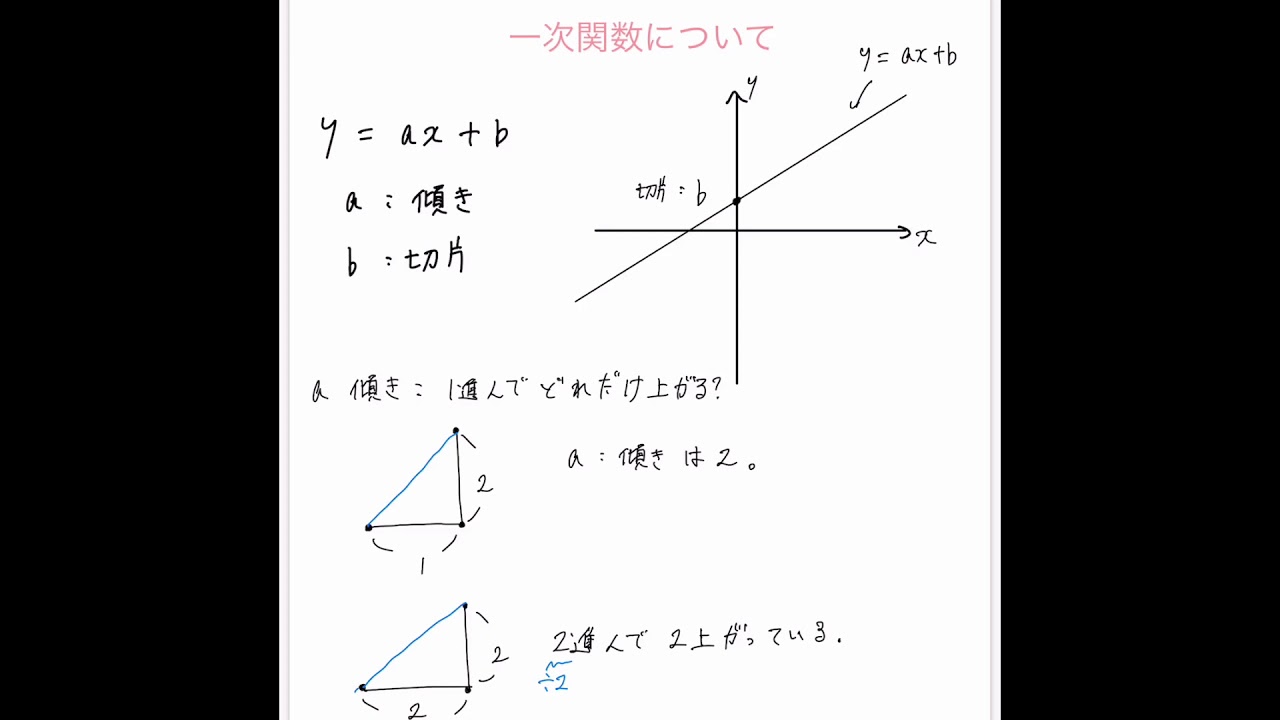 一次関数について
y = ax + b
a : 傾き
b : 切片
y = ax+b
y
切片 : b
x
a 傾き : 1進んでどれだけ上がる?
2
1
a : 傾きは2。
2
2
2進んで2上がっている.
÷2